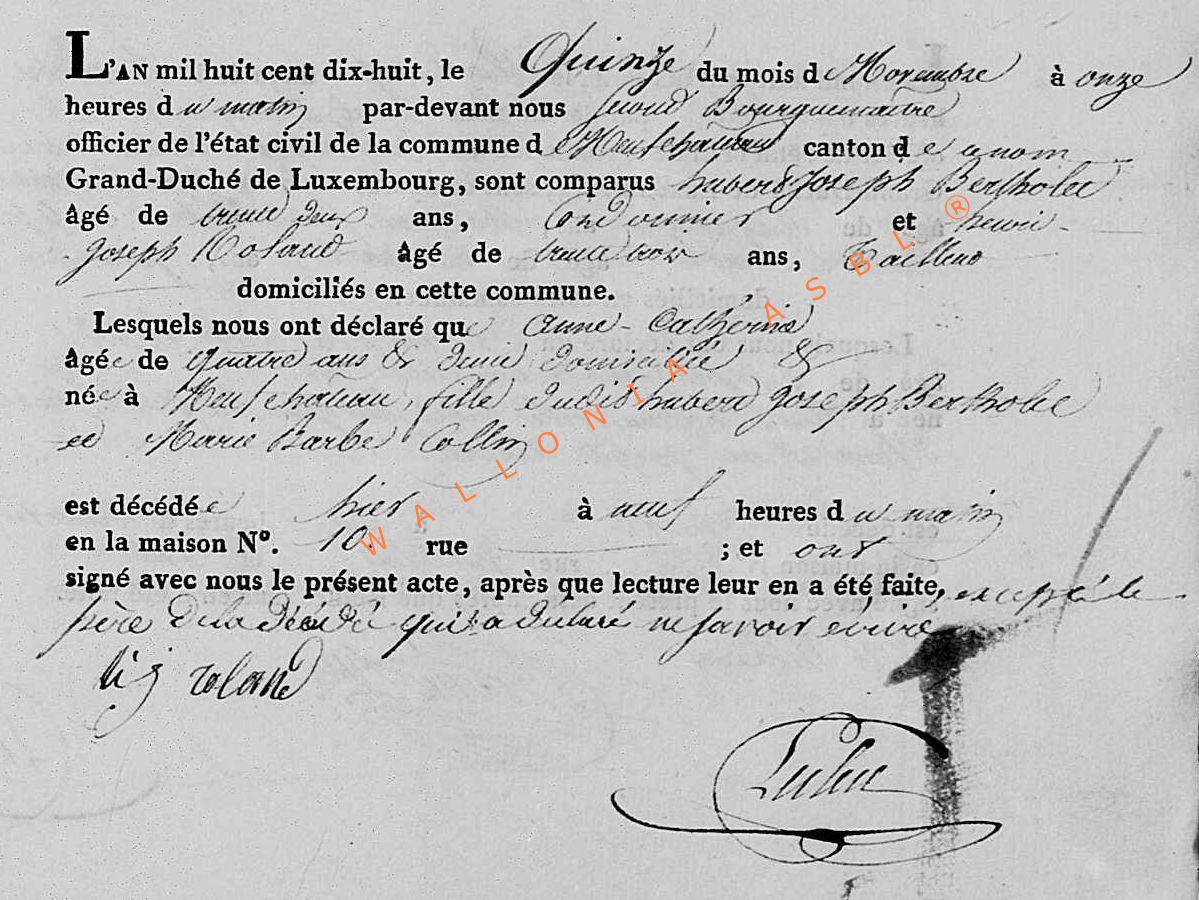 L'AN mil huit cent dix-huit, le Quinze du mois de Novembre à onze
heures du matin par-devant nous second Bourguemaitre
officier de l'état civil de la commune de Neufchâteau canton de ce nom
Grand-Duché de Luxembourg, sont comparus hubert Joseph Bertholet
âgé de trente deux ans, Cordonnier et henri
Joseph Roland âgé de trente trois ans, Tailleur
domiciliés en cette commune.
Lesquels nous ont déclaré que Anne-Catherine
âgée de quatre ans & demie domiciliée &
née à Neufchâteau, fille dudit hubert Joseph Bertholet
et Marie Barbe Collin
est décédée hier à neuf heures du matin
en la maison N°. 10. rue ; et ont
signé avec nous le présent acte, après que lecture leur en a été faite, excepté le
père de la décédée qui a declaré ne savoir ecrire
h j roland
WALLONIA ASBL ®